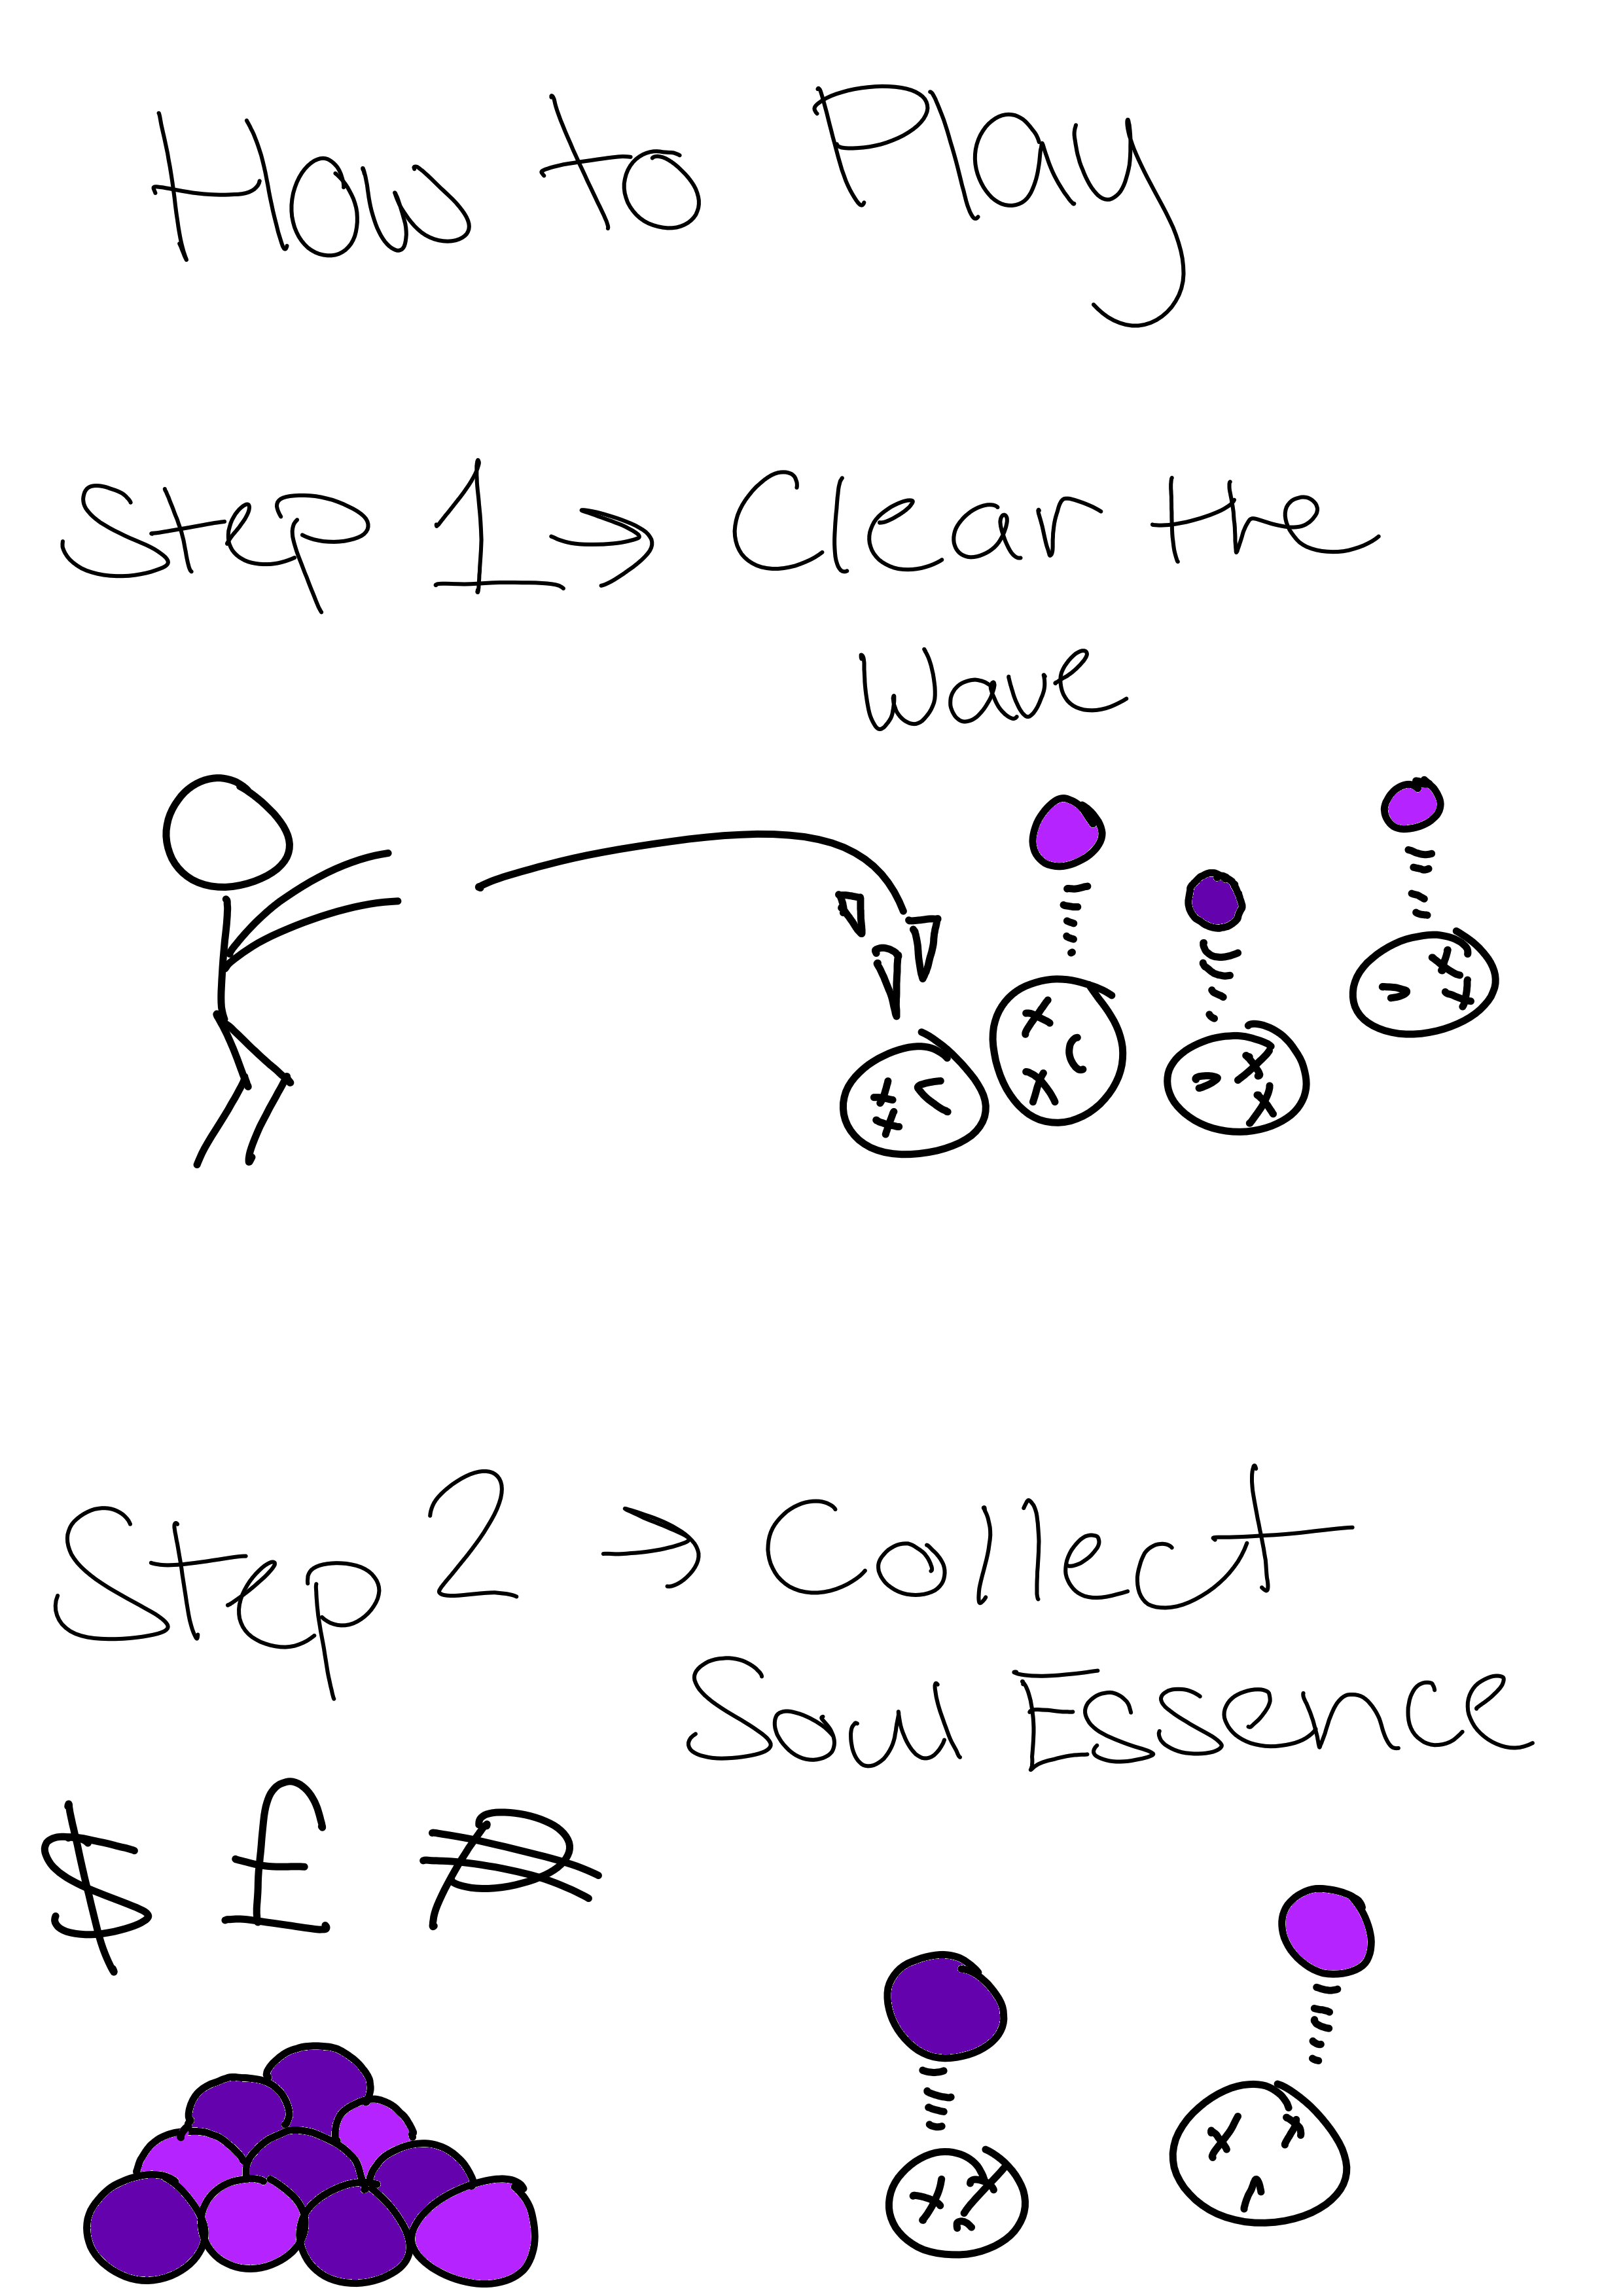 How to Play
Step 1 → Clear the
Wave
Step 2 → Collect
Soul Essence
$ £ ₱